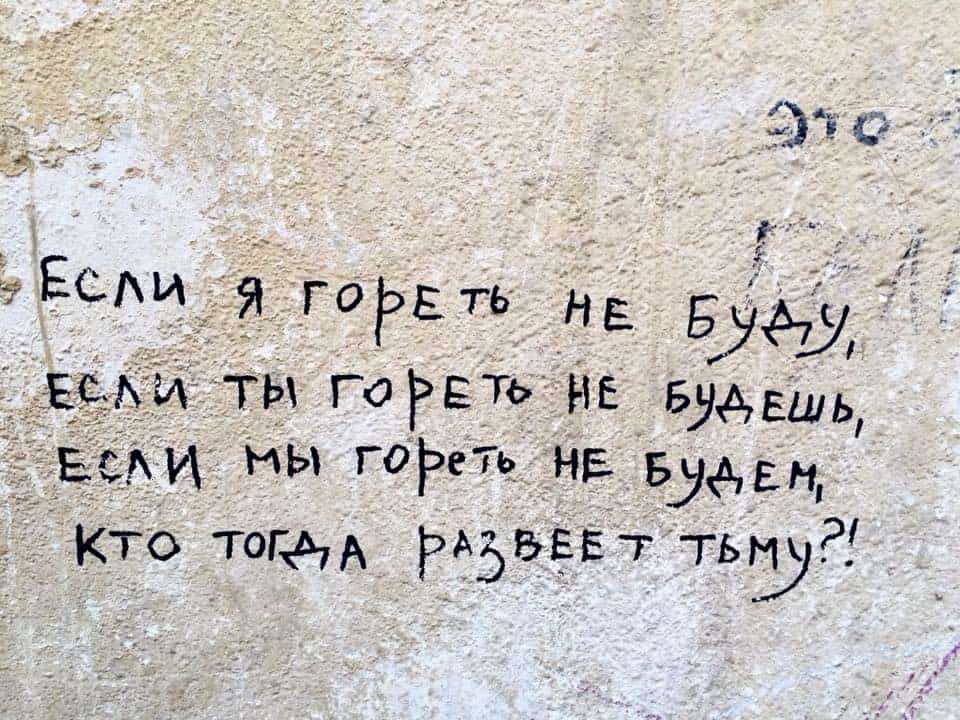 это
Если я гореть не буду,
если ты гореть не будешь,
если мы гореть не будем,
кто тогда развеет тьму?!